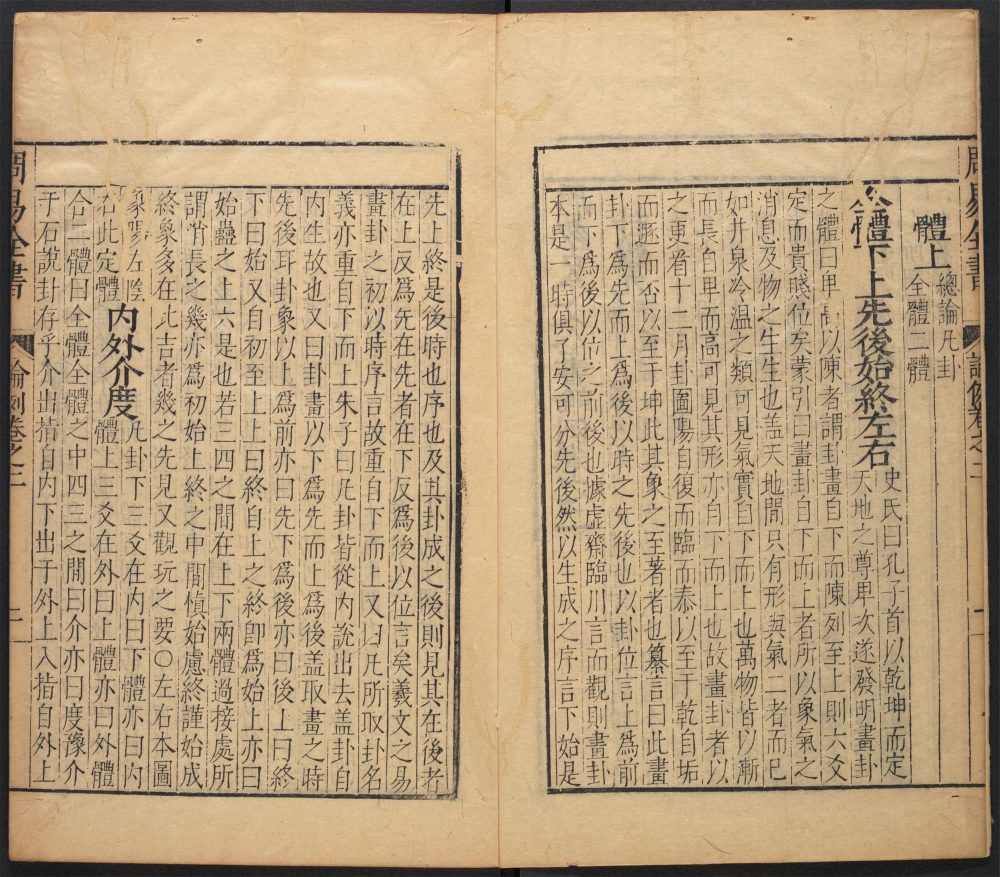 周易全書
論例卷之二
體上
總論凡卦
全體二體
全體下上先後始終左右
史氏曰孔子首以乾坤而定
天地之尊卑次遂發明畫卦
之體曰卑高以陳者謂卦畫自下而陳列至上則六爻
定而貴賤位矣蒙引曰畫卦自下而上者所以象氣之
消息及物之生生也盖天地間只有形與氣二者而已
如井泉冷温之類可見氣實自下而上也萬物皆以漸
而長自卑而高可見其形亦自下而上也故畫卦者以
之更看十二月卦圖陽自復而臨而泰以至于乾自垢
而遯而否以至于坤此其象之至著者也纂言曰此畫
卦下爲先而上爲後以時之先後也以卦位言上爲前
而下爲後以位之前後也據虛齋臨川言而觀則畫卦
本是一時俱了安可分先後然以生成之序言下始是
先上終是後時也序也及其卦成之後則見其在後者
在上反爲先在先者在下反爲後以位言矣羲文之易
畫卦之初以時序言故重自下而上又曰凡所取卦名
義亦重自下而上朱子曰凡卦皆從內說出去盖卦自
內生故也又曰卦畫以下爲先而上爲後盖取畫之時
先後耳卦象以上爲前亦曰先下爲後亦曰後上曰終
下曰始又自初至上上曰終自上之終卽爲始上亦曰
始蠱之上六是也若三四之間在上下兩體過接處所
謂消長之幾亦爲初始上終之中間慎始慮終謹始成
終象多在此吉者幾之先見又觀玩之要○左右本圖
象陽左陰
右此定體
內外介度
凡卦下三爻在內曰下體亦曰內
體上三爻在外曰上體亦曰外體
合二體曰全體全體之中四三之間曰介亦曰度豫介
于石說卦存乎介出指自內下出于外上入指自外上
周易全書
論例卷之二
二